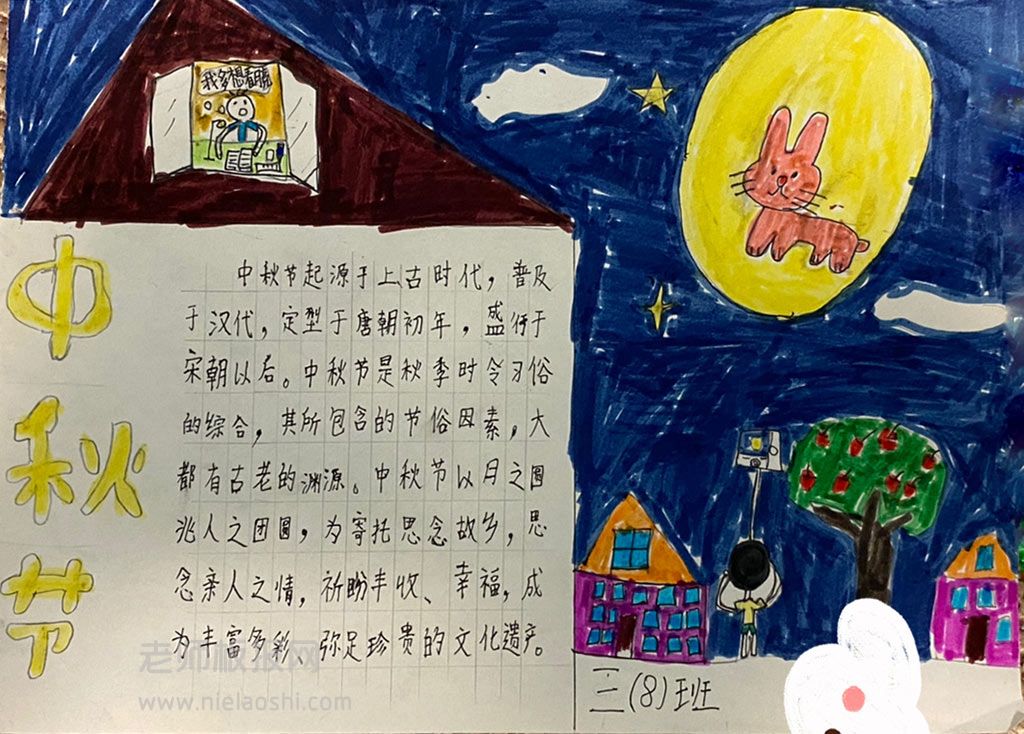 我多想看月亮
中秋节
中秋节起源于上古时代，普及
于汉代，定型于唐朝初年，盛行于
宋朝以后。中秋节是秋季时令习俗
的综合，其所包含的节俗因素，大
都有古老的渊源。中秋节以月之圆
兆人之团圆，为寄托思念故乡，思
念亲人之情，祈盼丰收、幸福，成
为丰富多彩、弥足珍贵的文化遗产。
老师板报网
www.nielaoshi.com
三(8)班